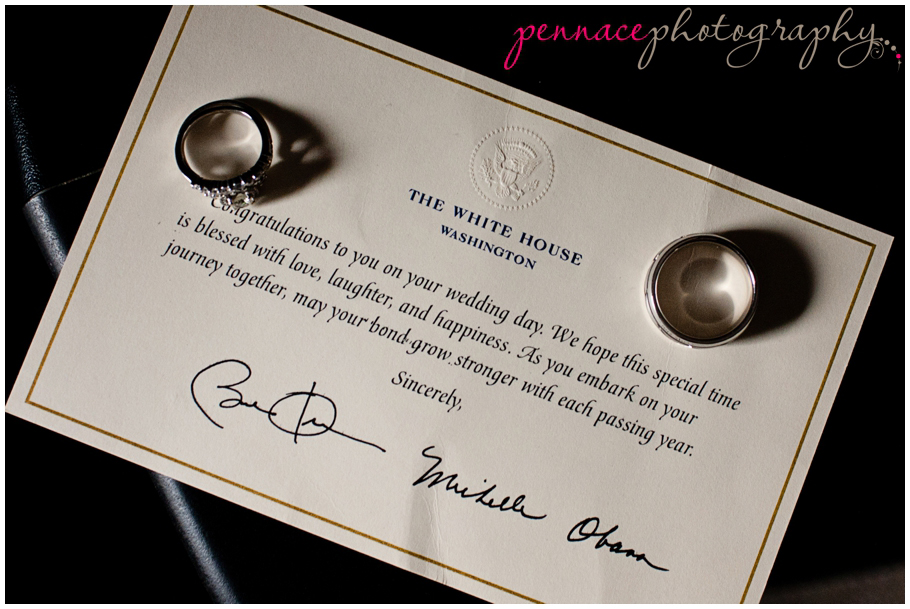 pennacephotography
THE WHITE HOUSE
WASHINGTON
Congratulations to you on your wedding day. We hope this special time
is blessed with love, laughter, and happiness. As you embark on your
journey together, may your bond grow stronger with each passing year.
Sincerely,
Michelle Obama